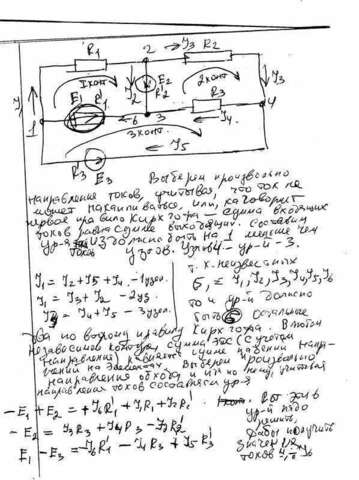 R1
2
I3
R2
1конт.
E2
R'2
I2
2конт.
I3
I1
E1
R'1
R3
4
1
6
3
I4
3конт.
I5
R'3
E3
Выберем произвольно
направление токов, учитывая, что ток не
может накапливаться, или, как говорит
первое правило Кирхгофа – сумма входящих
токов равна сумме выходящих. Составим
ур-я токов должно быть на 1 меньше чем
узлов. Узлов 4 – ур-й – 3.
I1 = I2 + I5 + I4 - 1узел.
I1 = I3 + I2 - 2уз.
I2 = I4 + I5 - 3узел.
т.к. неизвестных
6, = I1, I2, I3, I4, I5, I6
то и ур-й должно
быть 6 остальные
по второму правилу Кирхгофа. В любом
независимом контуре, сумма ЭДС (с учетом
направления) равняется сумме падений напр-
яжений на элементах. Выберем произвольно
направления обхода и по нему, учитывая
направления токов составляем ур-я
-E1 + E2 = + I6R'1 + I1R1 + I2R'2
- E2 = I3R2 + I4R3 - I2R'2
E1 - E3 = - I6R'1 - I4R3 + I5R'3
Вот эти 6
ур-й надо
решить,
дабы получить
значения
токов